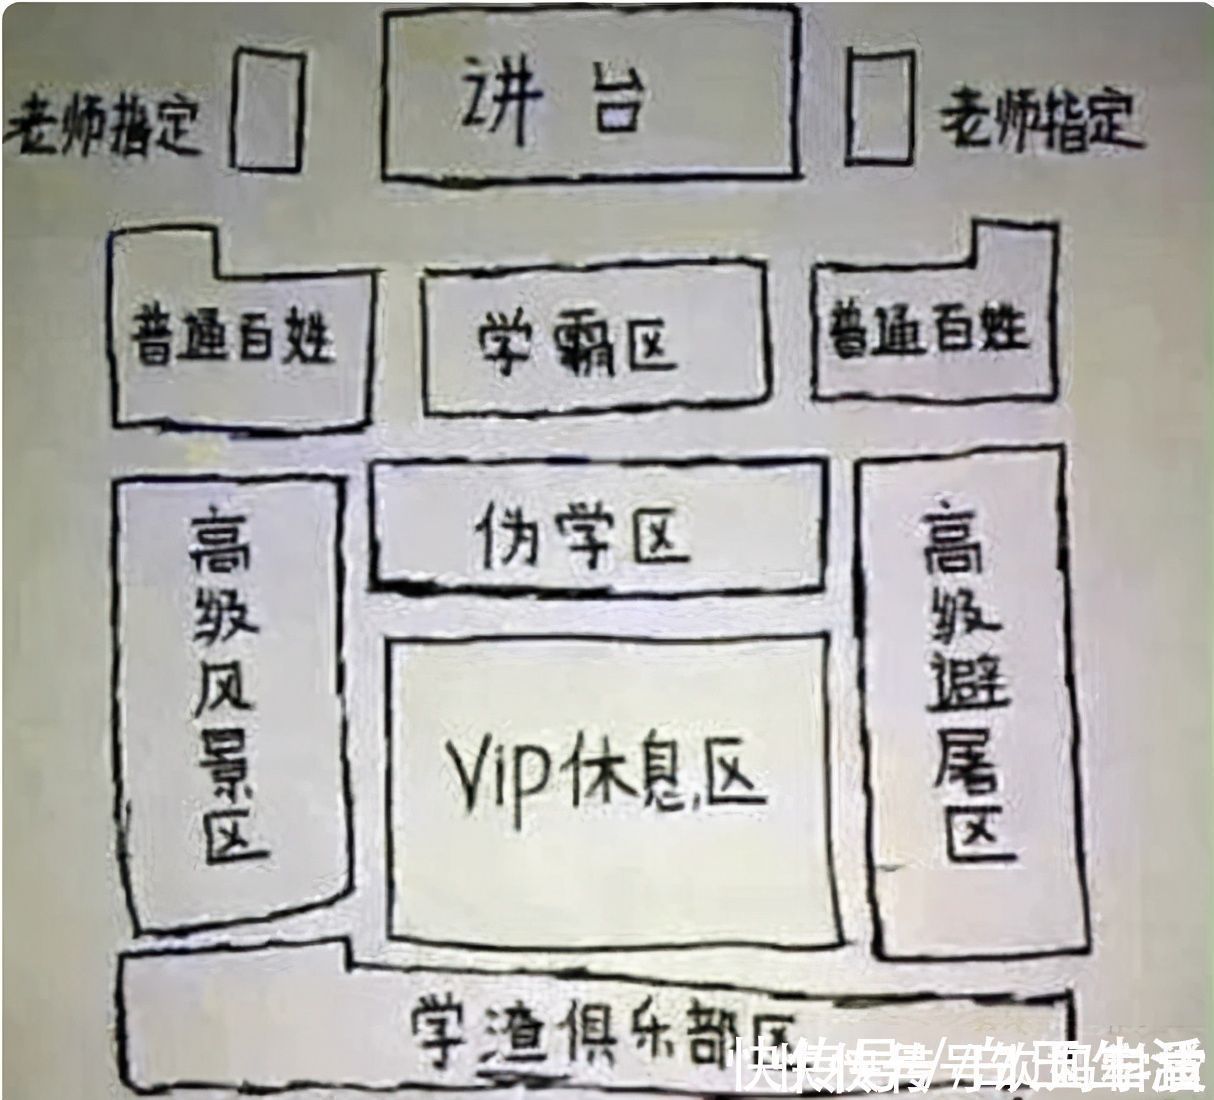 讲台
老师指定
老师指定
普通百姓
学霸区
普通百姓
伪学区
高级风景区
高级避屠区
Vip休息区
学渣俱乐部区